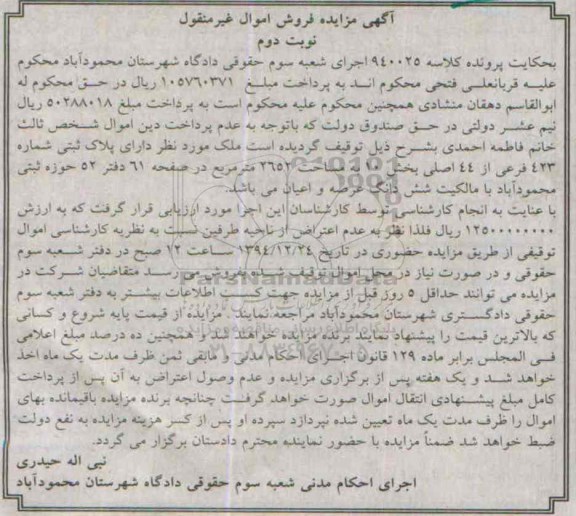 آگهی مزایده فروش اموال غیرمنقول
نوبت دوم
بحکایت پرونده کلاسه ۹۴۰۰۲۵ اجرای شعبه سوم حقوقی دادگاه شهرستان محمودآباد محکوم
علیه قربانعلی فتحی محکوم اند به پرداخت مبلغ ۱۰۵۷۶۰۳۷۱ ریال در حق محکوم له
ابوالقاسم دهقان منشادی همچنین محکوم علیه محکوم است به پرداخت مبلغ ۵۰۲۸۸۰۱۸ ریال
نیم عشر دولتی در حق صندوق دولت که باتوجه به عدم پرداخت دین اموال شخص ثالث
خانم فاطمه احمدی بشرح ذیل توقیف گردیده است ملک مورد نظر دارای پلاک ثبتی شماره
۴۲۳ فرعی از ۴۴ اصلی بخش ۱۰ به مساحت ۲۶۵۲ مترمربع در صفحه ۶۱ دفتر ۵۲ حوزه ثبتی
محمودآباد با مالکیت شش دانگ عرصه و اعیان می باشد.
با عنایت به انجام کارشناسی توسط کارشناسان این اجرا مورد ارزیابی قرار گرفت که به ارزش
۱۲۵۰۰۰۰۰۰۰۰ ریال فلذا نظر به عدم اعتراض از ناحیه طرفین نسبت به نظریه کارشناسی اموال
توقیفی از طریق مزایده حضوری در تاریخ ۱۳۹۴/۱۲/۲۴ ساعت ۱۲ صبح در دفتر شعبه سوم
حقوقی و در صورت نیاز در محل اموال توقیف شده بفروش می رسد متقاضیان شرکت در
مزایده می توانند حداقل ۵ روز قبل از مزایده جهت کسب اطلاعات بیشتر به دفتر شعبه سوم
حقوقی دادگستری شهرستان محمودآباد مراجعه نمایند . مزایده از قیمت پایه شروع و کسانی
که بالاترین قیمت را پیشنهاد نمایند برنده مزایده خواهند شد و همچنین ده درصد مبلغ اعلامی
فی المجلس برابر ماده ۱۲۹ قانون اجرای احکام مدنی و مابقی ثمن ظرف مدت یک ماه اخذ
خواهد شد و یک هفته پس از برگزاری مزایده و عدم وصول اعتراض به آن پس از پرداخت
کامل مبلغ پیشنهادی انتقال اموال صورت خواهد گرفت چنانچه برنده مزایده باقیمانده بهای
اموال را ظرف مدت یک ماه تعیین شده نپردازد سپرده او پس از کسر هزینه مزایده به نفع دولت
ضبط خواهد شد ضمناً مزایده با حضور نماینده محترم دادستان برگزار می گردد.
نبی اله حیدری
اجرای احکام مدنی شعبه سوم حقوقی دادگاه شهرستان محمودآباد
ParsNamadData